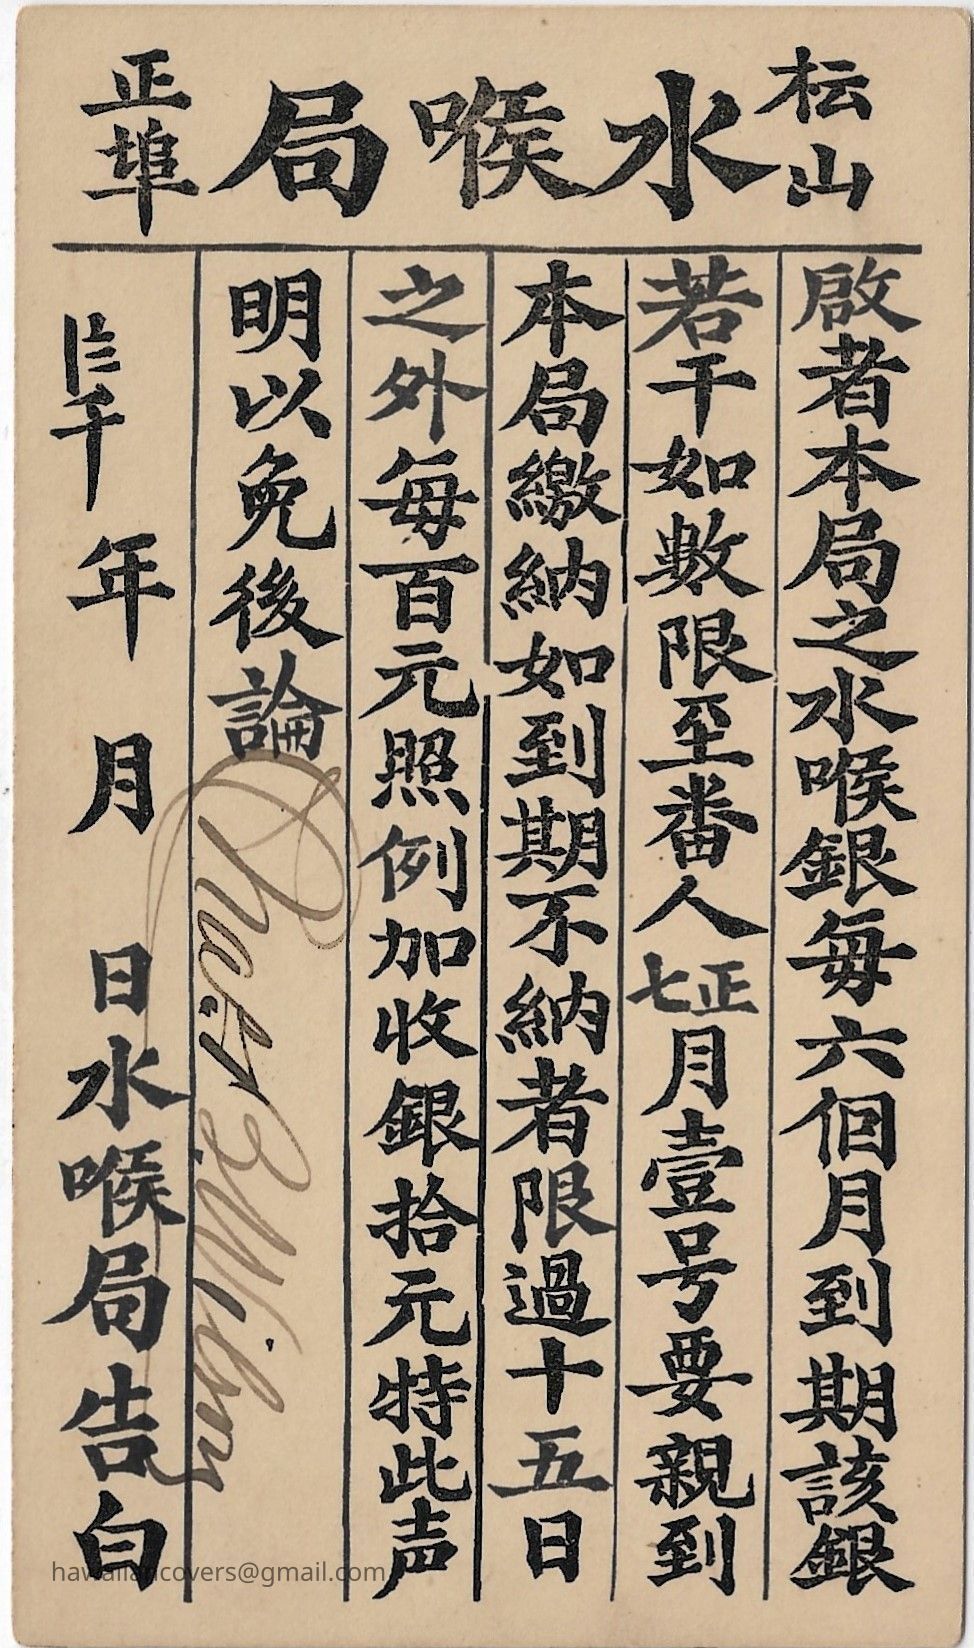 枟山
水喉局
正埠
啟者本局之水喉銀每六個月到期該銀
若干如數限至番人正七月壹号要親到
本局繳納如到期不納者限過十五日
之外每百元照例加收銀拾元特此声
明以免後論
年 月 日水喉局告白
Chas. B. Wilson
hawaiiancovers@gmail.com